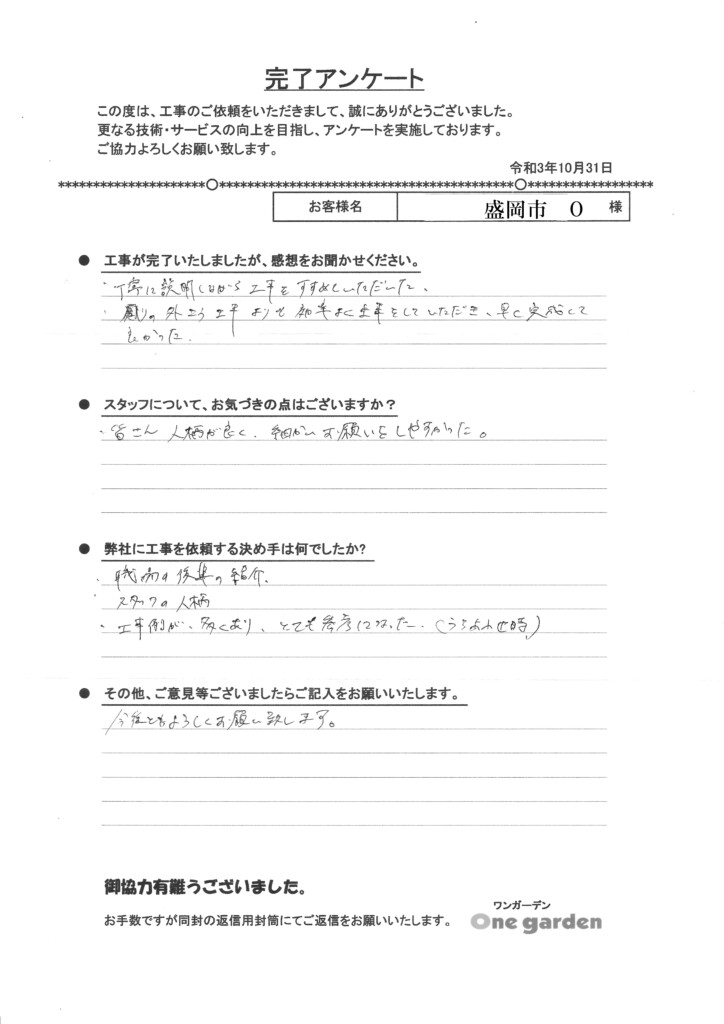 完了アンケート
この度は、工事のご依頼をいただきまして、誠にありがとうございました。
更なる技術・サービスの向上を目指し、アンケートを実施しております。
ご協力よろしくお願い致します。
令和3年10月31日
お客様名 盛岡市 O 様
● 工事が完了いたしましたが、感想をお聞かせください。
・丁寧に説明しながら工事をすすめていただいた。
・の外こう工事よりも をしていただき、早く完成して
良かった。
● スタッフについて、お気づきの点はございますか？
・皆さん 人柄が良く、細かいお願いをしやすかった。
● 弊社に工事を依頼する決め手は何でしたか?
・職場の後輩の紹介、
スタッフの人柄
・工事例が、多くあり、とても参考になった。(うちあわせ時)
● その他、ご意見等ございましたらご記入をお願いいたします。
今後ともよろしくお願い致します。
御協力有難うございました。
お手数ですが同封の返信用封筒にてご返信をお願いいたします。
ワンガーデン
One garden